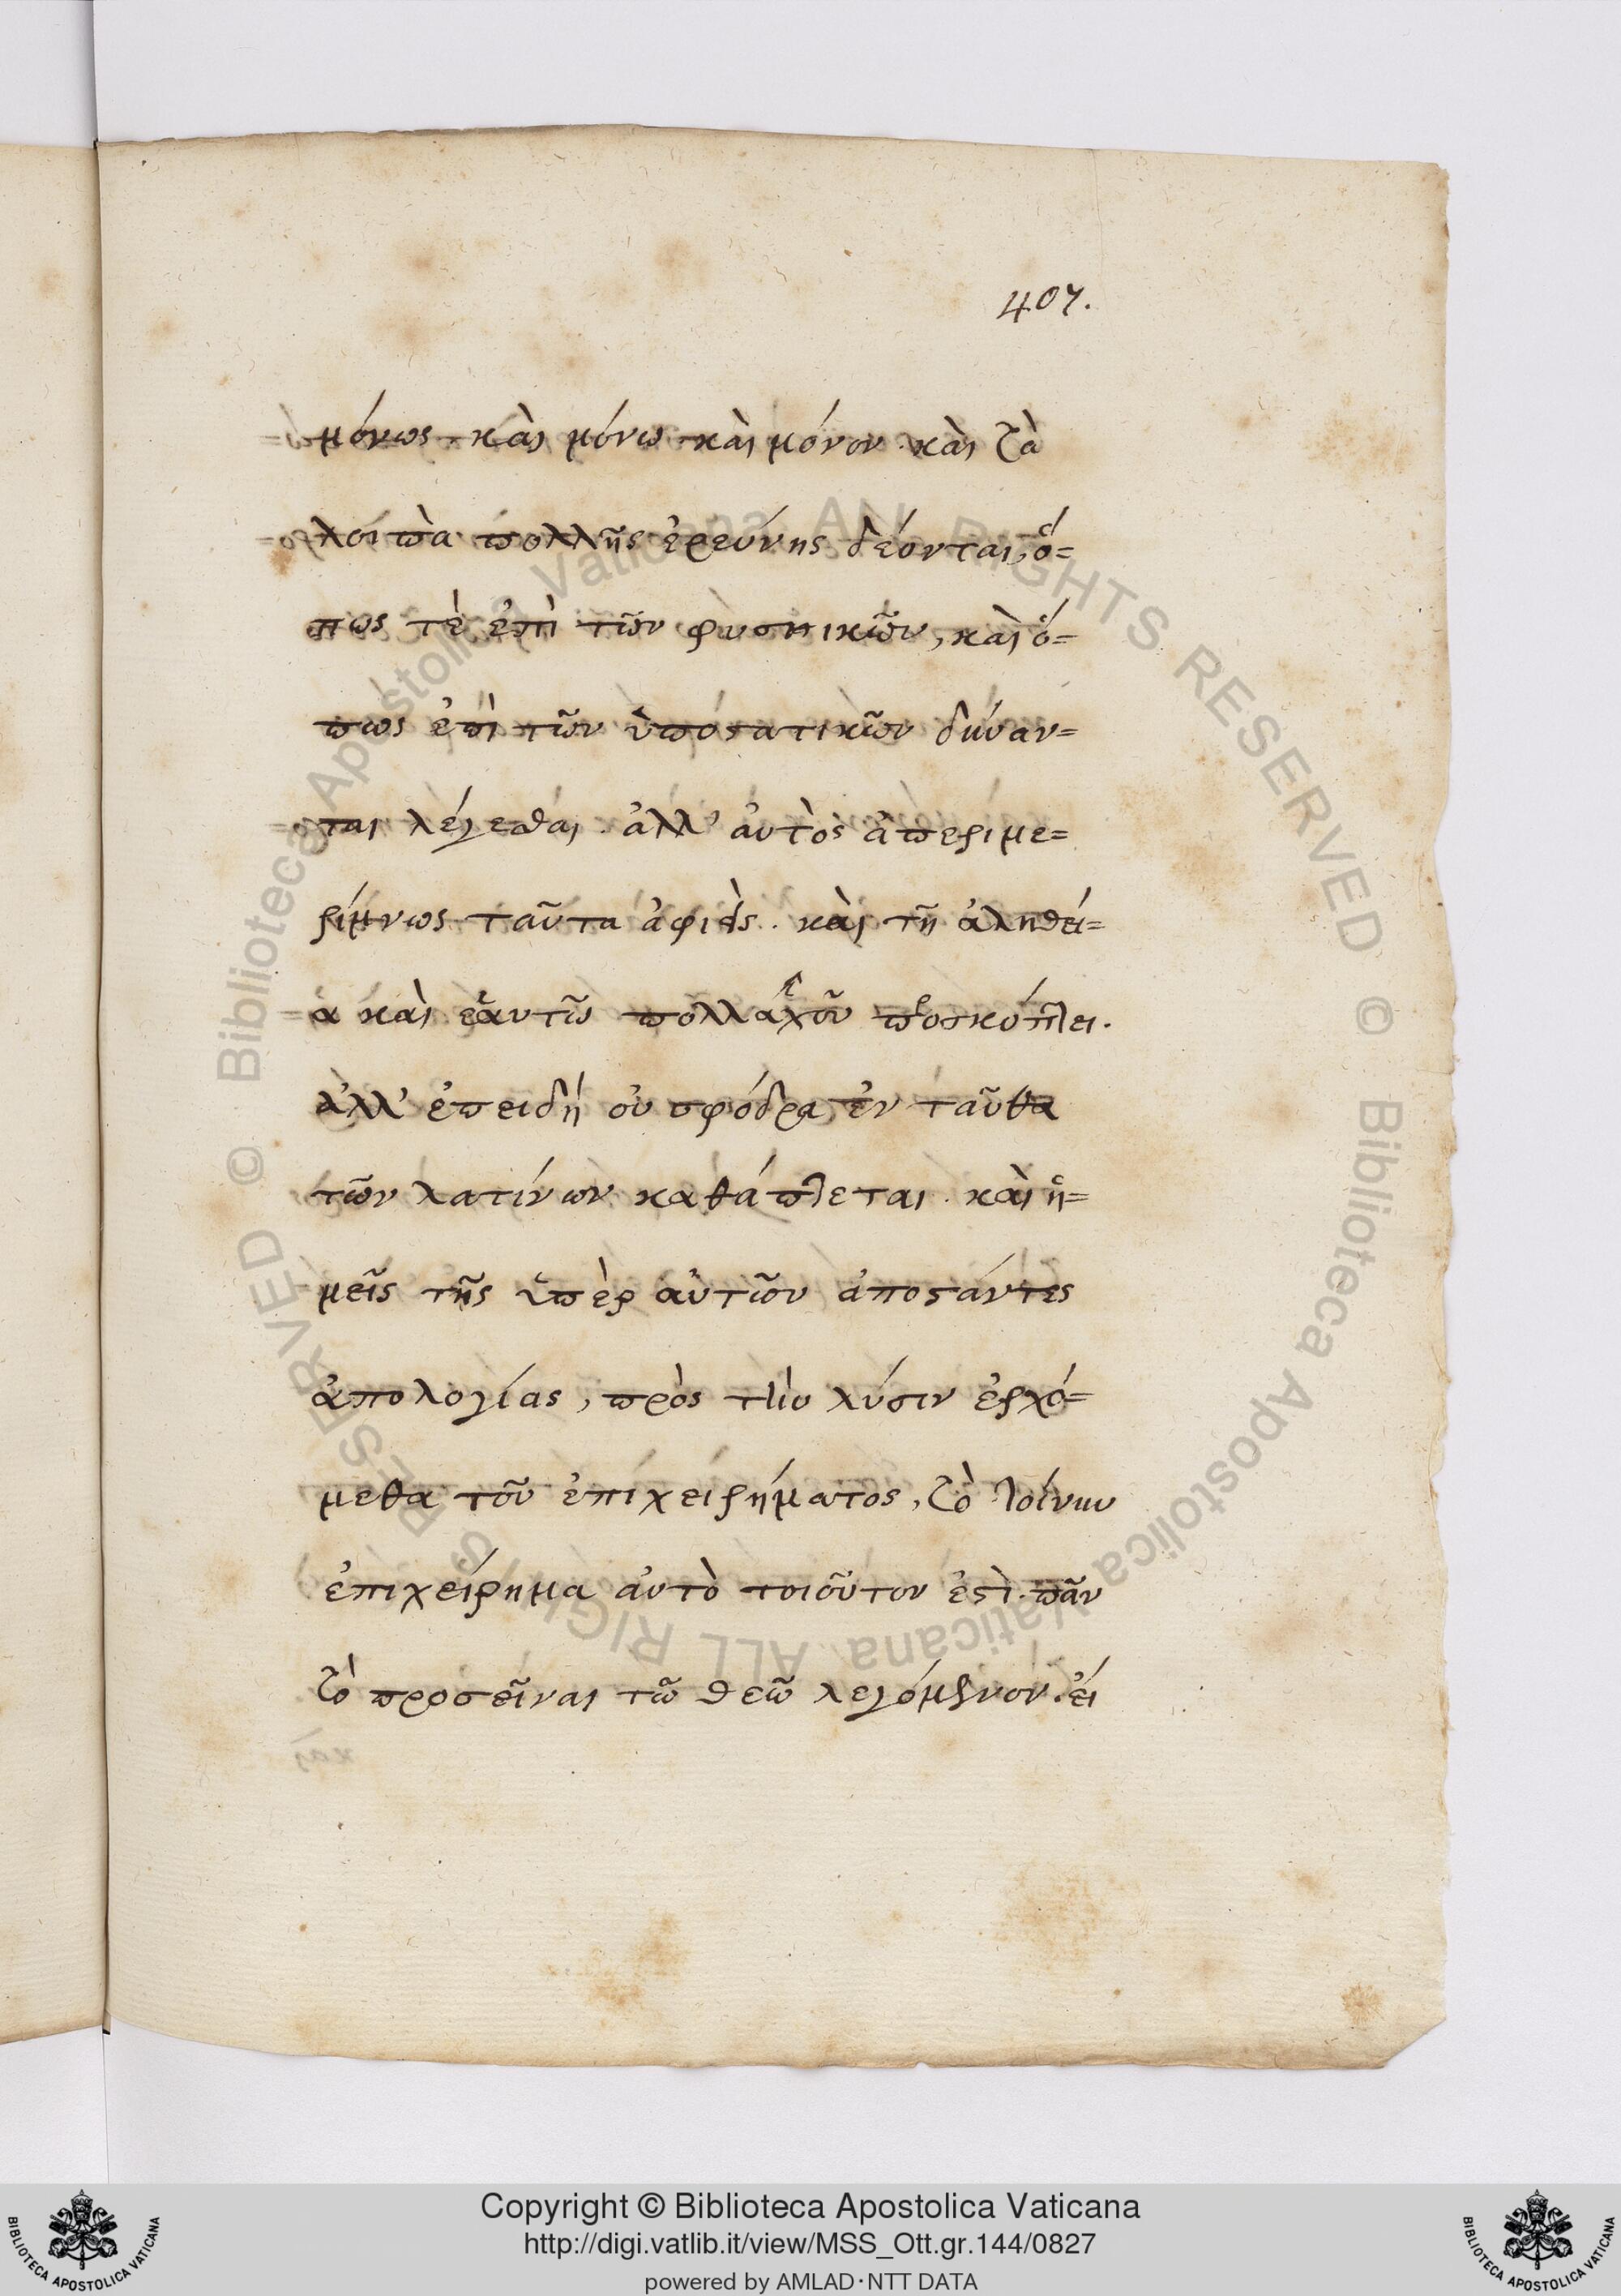 407.
μόνως καὶ μόνω καὶ μόνον. καὶ τὰ
λοιπὰ πολλῆς ἐρεύνης δέονται, ὅ=
πως τὲ ἐπὶ τῶν φυσικῶν, καὶ ὅ=
πως ἐπὶ τῶν ὑποστατικῶν δύναν=
ται λέγεσθαι. ἀλλ' αὐτὸς ἀπεριμε=
ρίμνως ταῦτα ἀφιεὶς. καὶ τῇ ἀληθεί=
α καὶ ἑαυτῶ πολλαχοῦ προσκόπτει.
ἀλλ' ἐπειδή οὐ σφόδρα ἐν ταῦθα
τῶν λατίνων καθάπτεται. καὶ ἡ=
μεῖς τῆς ὑπὲρ αὐτῶν ἀποστάντες
ἀπολογίας, πρὸς τὴν λύσιν ἐρχό=
μεθα τοῦ ἐπιχειρήματος, τὸ τοίνυν
ἐπιχείρημα αὐτὸ τοιοῦτον ἐστὶ. πᾶν
τὸ προσεῖναι τῶ θεῶ λεγόμενον. εἰ
Copyright © Biblioteca Apostolica Vaticana
http://digi.vatlib.it/view/MSS_Ott.gr.144/0827
powered by AMLAD·NTT DATA
BIBLIOTECA APOSTOLICA VATICANA
BIBLIOTECA APOSTOLICA VATICANA
© Biblioteca Apostolica Vaticana ALL RIGHTS RESERVED
© Biblioteca Apostolica Vaticana ALL RIGHTS RESERVED